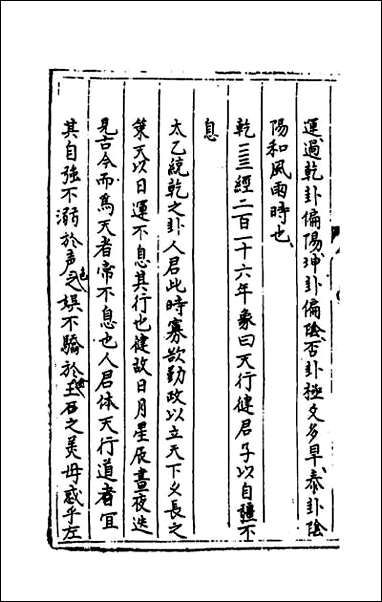 運過乾卦偏陽坤卦偏陰否卦極文多旱泰卦陰
陽和風雨時也
乾☰☰經二百一十六年象曰天行健君子以自彊不
息
太乙統乾之卦人君此時寡欲勤政以立天下久長之
策天以日運不息其行也健故日月星辰晝夜迭
見古今而為天者常不息也人君体天行道者宜
其自強不溺於声色之娱不驕於玉石之美毋惑乎左